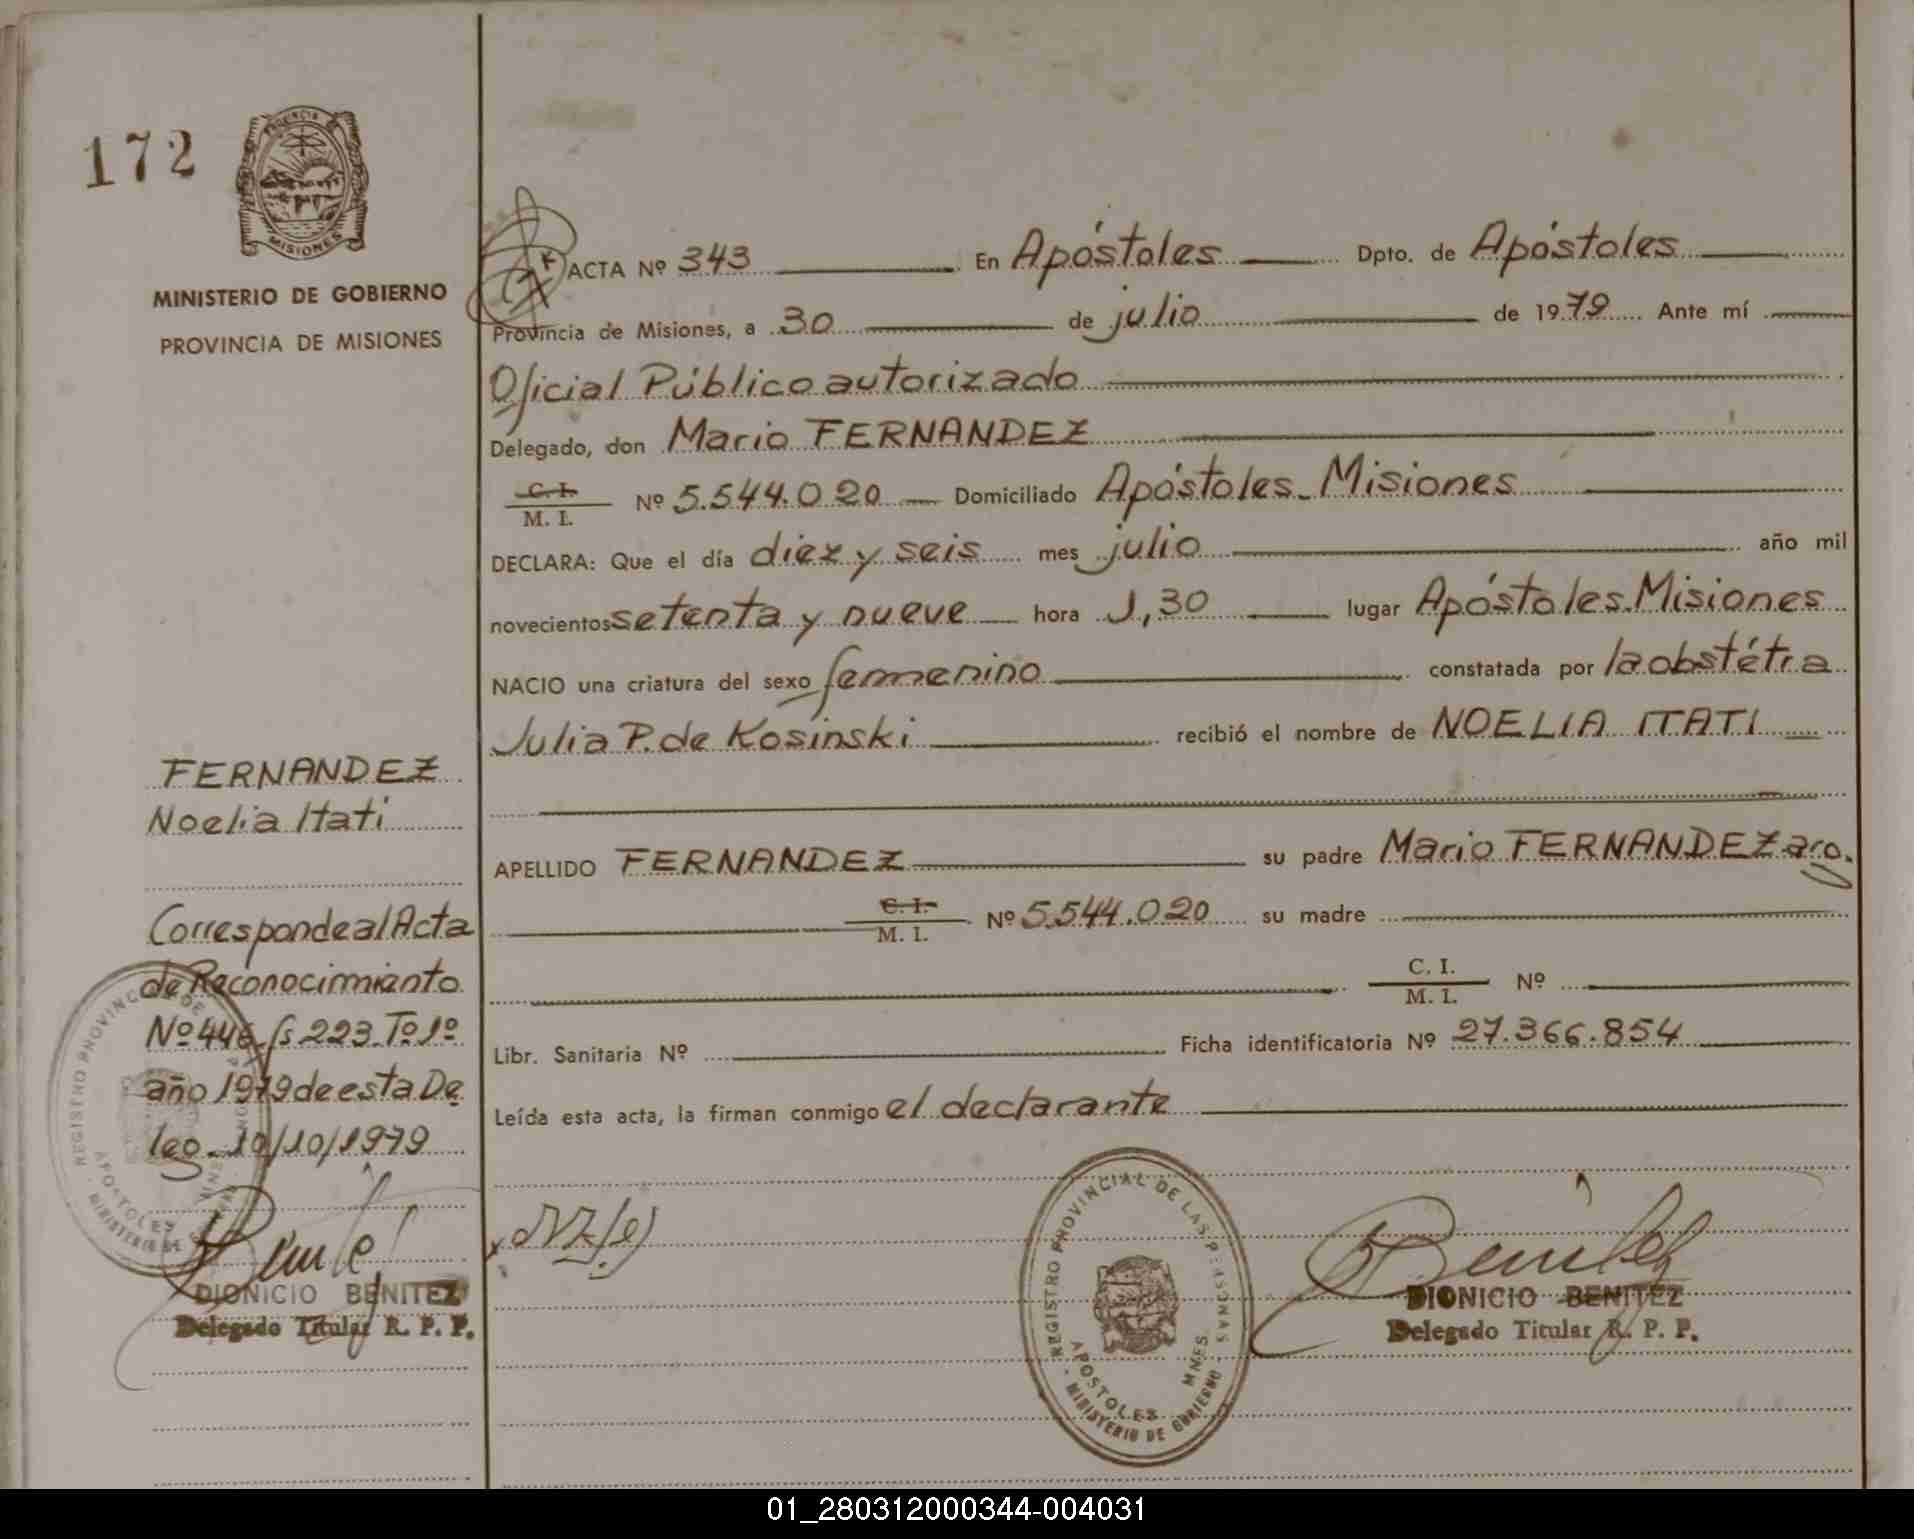 172
MISIONES
MINISTERIO DE GOBIERNO
PROVINCIA DE MISIONES
ACTA Nº 343 En Apóstoles Dpto. de Apóstoles
Provincia de Misiones, a 30 de julio de 1979 Ante mí
Oficial Público autorizado
Delegado, don Mario FERNANDEZ
C. I.
M. I. Nº 5.544.020 Domiciliado Apóstoles. Misiones
DECLARA: Que el día diez y seis mes julio año mil
novecientos setenta y nueve hora 1,30 lugar Apóstoles. Misiones
NACIO una criatura del sexo femenino constatada por la obstétra
Julia P. de Kosinski recibió el nombre de NOELIA ITATI
APELLIDO FERNANDEZ su padre Mario FERNANDEZ arg.
C. I.
M. I. Nº 5.544.020 su madre
C. I.
M. I. Nº
Libr. Sanitaria Nº Ficha identificatoria Nº 27.366.854
Leída esta acta, la firman conmigo el declarante
REGISTRO PROVINCIAL DE LAS PERSONAS
APOSTOLES MNES.
MINISTERIO DE GOBIERNO
Benitez
DIONICIO BENITEZ
Delegado Titular R. P. P.
FERNANDEZ
Noelia Itati
Corresponde al Acta
de Reconocimiento
Nº 446 fs 223 Tº 1º
año 1979 de esta De
leg. 10/10/1979
REGISTRO PROVINCIAL DE
APOSTOLES
MINISTERIO DE
DIONICIO BENITEZ
Delegado Titular R. P. P.
01_280312000344-004031